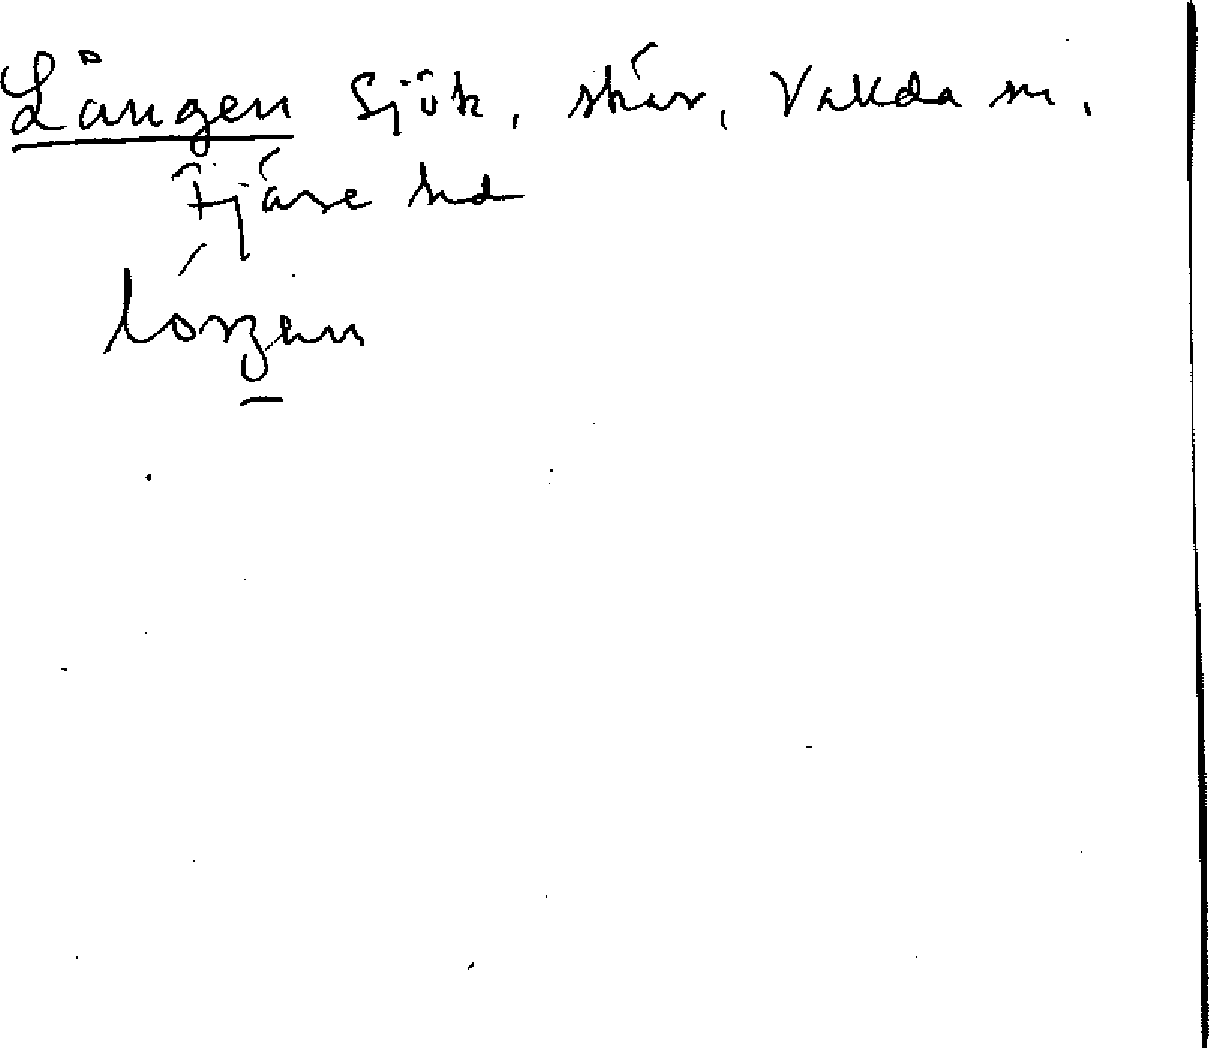 Lången Sjök, skär, Vallda sn.
Fjäre hd
lóngen